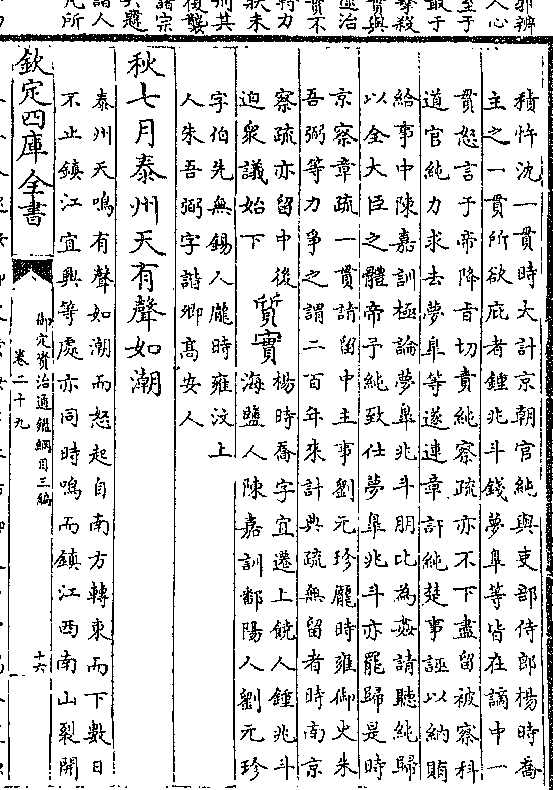 積忤沈一貫時大計京朝官純與吏部侍郎楊時喬
主之一貫所欲庇者鍾兆斗錢夢臯等皆在謫中一
貫怒言于帝降旨切責純察疏亦不下盡留被察科
道官純力求去夢臯等遂連章訐純楚事誣以納賄
給事中陳嘉訓極論夢臯兆斗朋比為姦請聽純歸
以全大臣之體帝予純致仕夢臯兆斗亦罷歸是時
京察章疏一貫請留中主事劉元珍龐時雍御史朱
吾弼等力爭之謂二百年來計典疏無留者時南京
察疏亦留中後
迫衆議始下
質實
楊時喬字宜遷上饒人鍾兆斗
海鹽人陳嘉訓鄱陽人劉元珍
字伯先無錫人龐時雍汶上
人朱吾弼字諧卿髙安人
秋七月泰州天有聲如潮
泰州天鳴有聲如潮而怒起自南方轉東而下數日
不止鎮江宜興等處亦同時鳴而鎮江西南山裂開
欽定四庫全書
御定資治通鑑綱目三編
卷二十九
十六